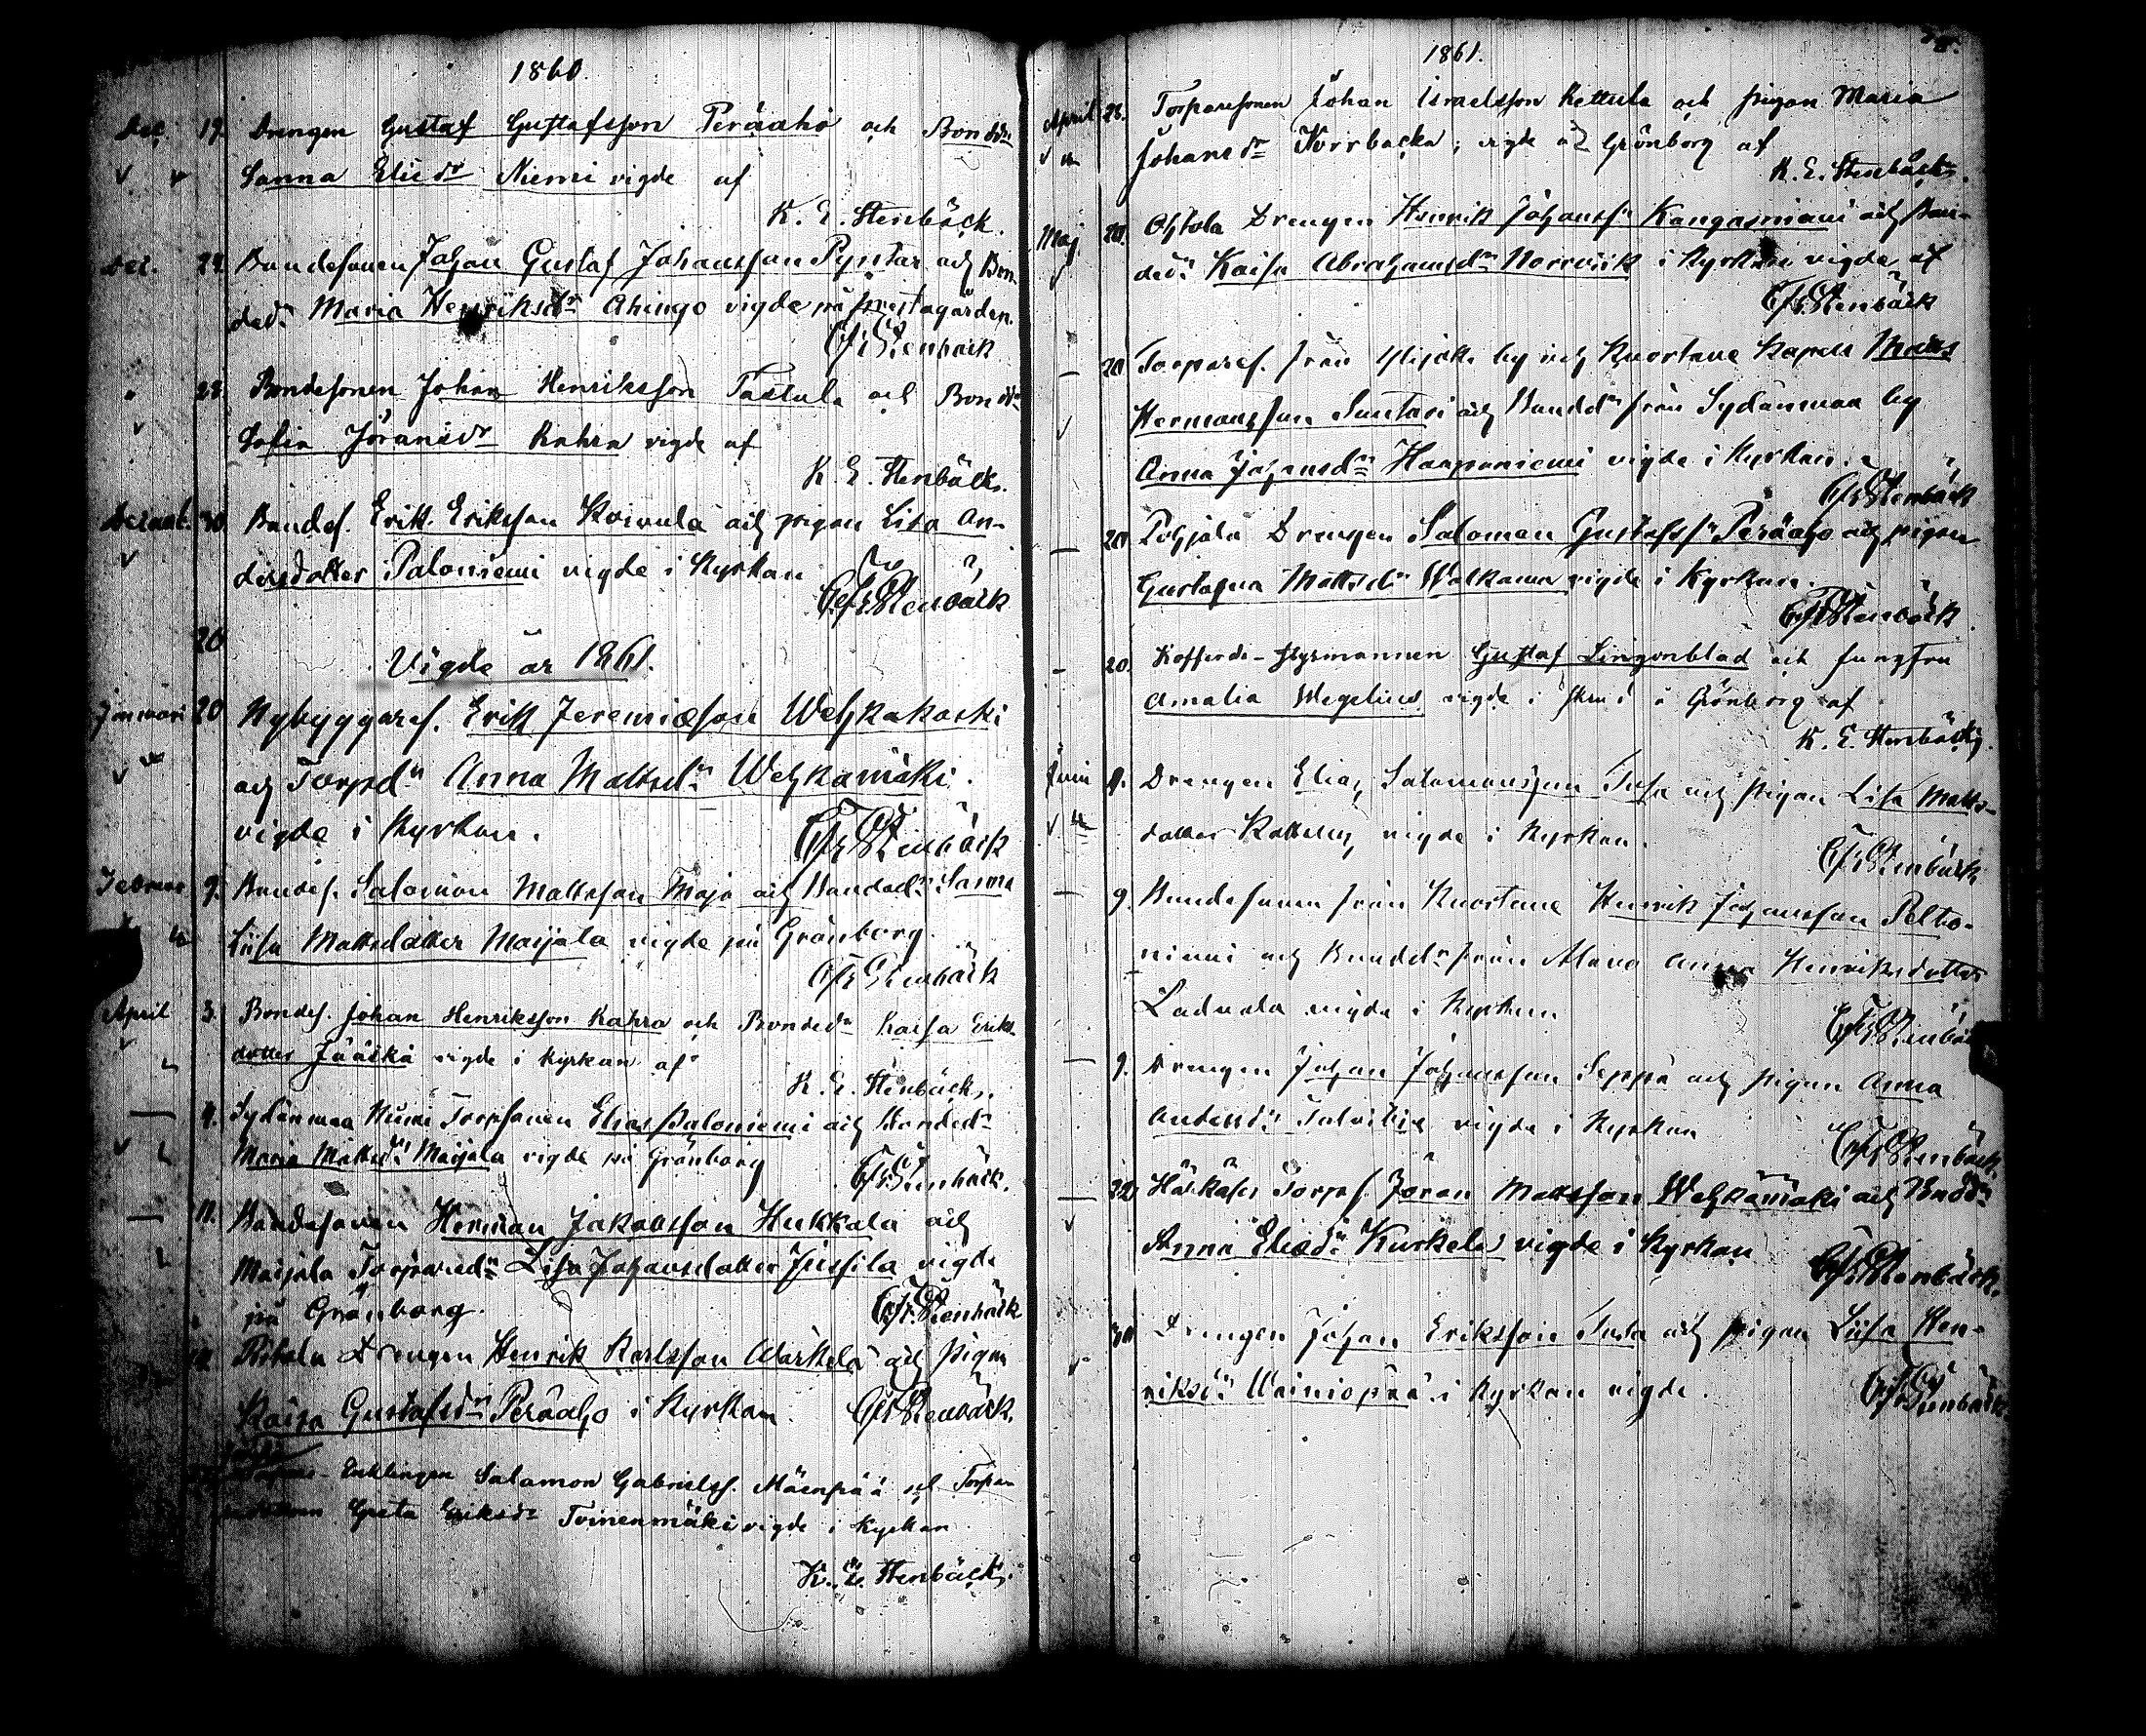 1860.
Dec 19. Drengen Gustaf Gustafsson Peräaho och Bondedr
Sanna Eliædr Niemi vigde af
K. E. Stenbäck.
Dec. 24. Bondesonen Johan Gustaf Johansson Pyntar och Bon-
dedr Maria Henriksdr Ahingo vigde på prestagården.
Stenbäck
" 28. Bondesonen Johan Henriksson Tastula och Bondedr
Sofia Jöransdr Kahra vigde af
K. E. Stenbäck.
30 Bondes. Erik Eriksson Koivula och pigan Lisa An-
dersdotter Paloniemi vigde i Kyrkan
Stenbäck
26
Vigde år 1861.
Januari 20 Nybyggares. Erik Jeremiæson Wehkakoski
och Torpdr Anna Mattsdr Wehkamäki.
vigde i Kyrkan.
Stenbäck
9. Bondes. Salomon Mattsson Maja och Bondedr Sanna
Liisa Mattsdotter Maijala vigde på Grönborg.
Stenbäck
April 3. Bondes. Johan Henriksson Kahra och Bondedr Kaisa Eriks-
dotter Jääskä vigde i Kyrkan af
K. E. Stenbäck.
— 4. Sydänmaa Niemi Torpsonen Elias Paloniemi och Bondedr
Maria Mattsdr Maijala vigde på Grönborg
Stenbäck.
— 11. Bondesonen Herman Jakobsson Hukkala och
Maijala Torparedr Lisa Johansdotter Jussila vigde
på Grönborg.
Stenbäck
Ritola Drengen Henrik Karlsson Wärkelä och pigan
Kaisa Gustafsdr Peräaho i Kyrkan.
Stenbäck.
Enklingen Salamon Gabrielss. Mäenpää och Torpare
Greta Eriksdr Toinenmäki vigde i Kyrkan
K. E. Stenbäck.
1861.
April 28. Torparesonen Johan Israelsson Kettula och pigan Maria
Johansdr Torrbacka, vigde på Grönborg af
K. E. Stenbäck.
Maj 20. Ohtola Drengen Henrik Johanss. Kangasniemi och Bon-
dedr Kaisa Abrahamsdr Norrvik i Kyrkan vigde af
Stenbäck
— 20 Torpares. från Ylijoki by och Kuortane Kapell Matts
Hermansson Suntari och Bondedr från Sydänmaa by
Anna Johansdr Haapaniemi vigde i Kyrkan.
Stenbäck
— 20 Pohjola Drengen Salomon Gustafss. Peräaho och pigan
Gustafva Mattsdr Walkama vigde i Kyrkan.
Stenbäck.
— 20. Kofferdi-styrmannen Gustaf Lingonblad och jungfru
Amalia Wegelius vigde i å Grönborg af
K. E. Stenbäck.
Juni 9. Drengen Elias Salomonsson Tusa och pigan Lisa Matts-
dotter vigde i Kyrkan.
Stenbäck
— 9. Bondesonen från Kuortane Henrik Johansson Pelto-
niemi och Bondedr från Alavo Anna Henriksdotter
vigde i Kyrkan
Stenbäck
— 9. Drengen Johan Johansson Seppä och pigan Anna
Andersdr Talvitie vigde i Kyrkan
Stenbäck.
— 22 Härkäsen Torpes. Jöran Mattsson Wehkamäki och Bondedr
Anna Eliædr Kurkela vigde i Kyrkan
Stenbäck.
30 Drengen Johan Eriksson Tusa och pigan Liisa Hen-
riksdr Wainiopää i Kyrkan vigde.
Stenbäck